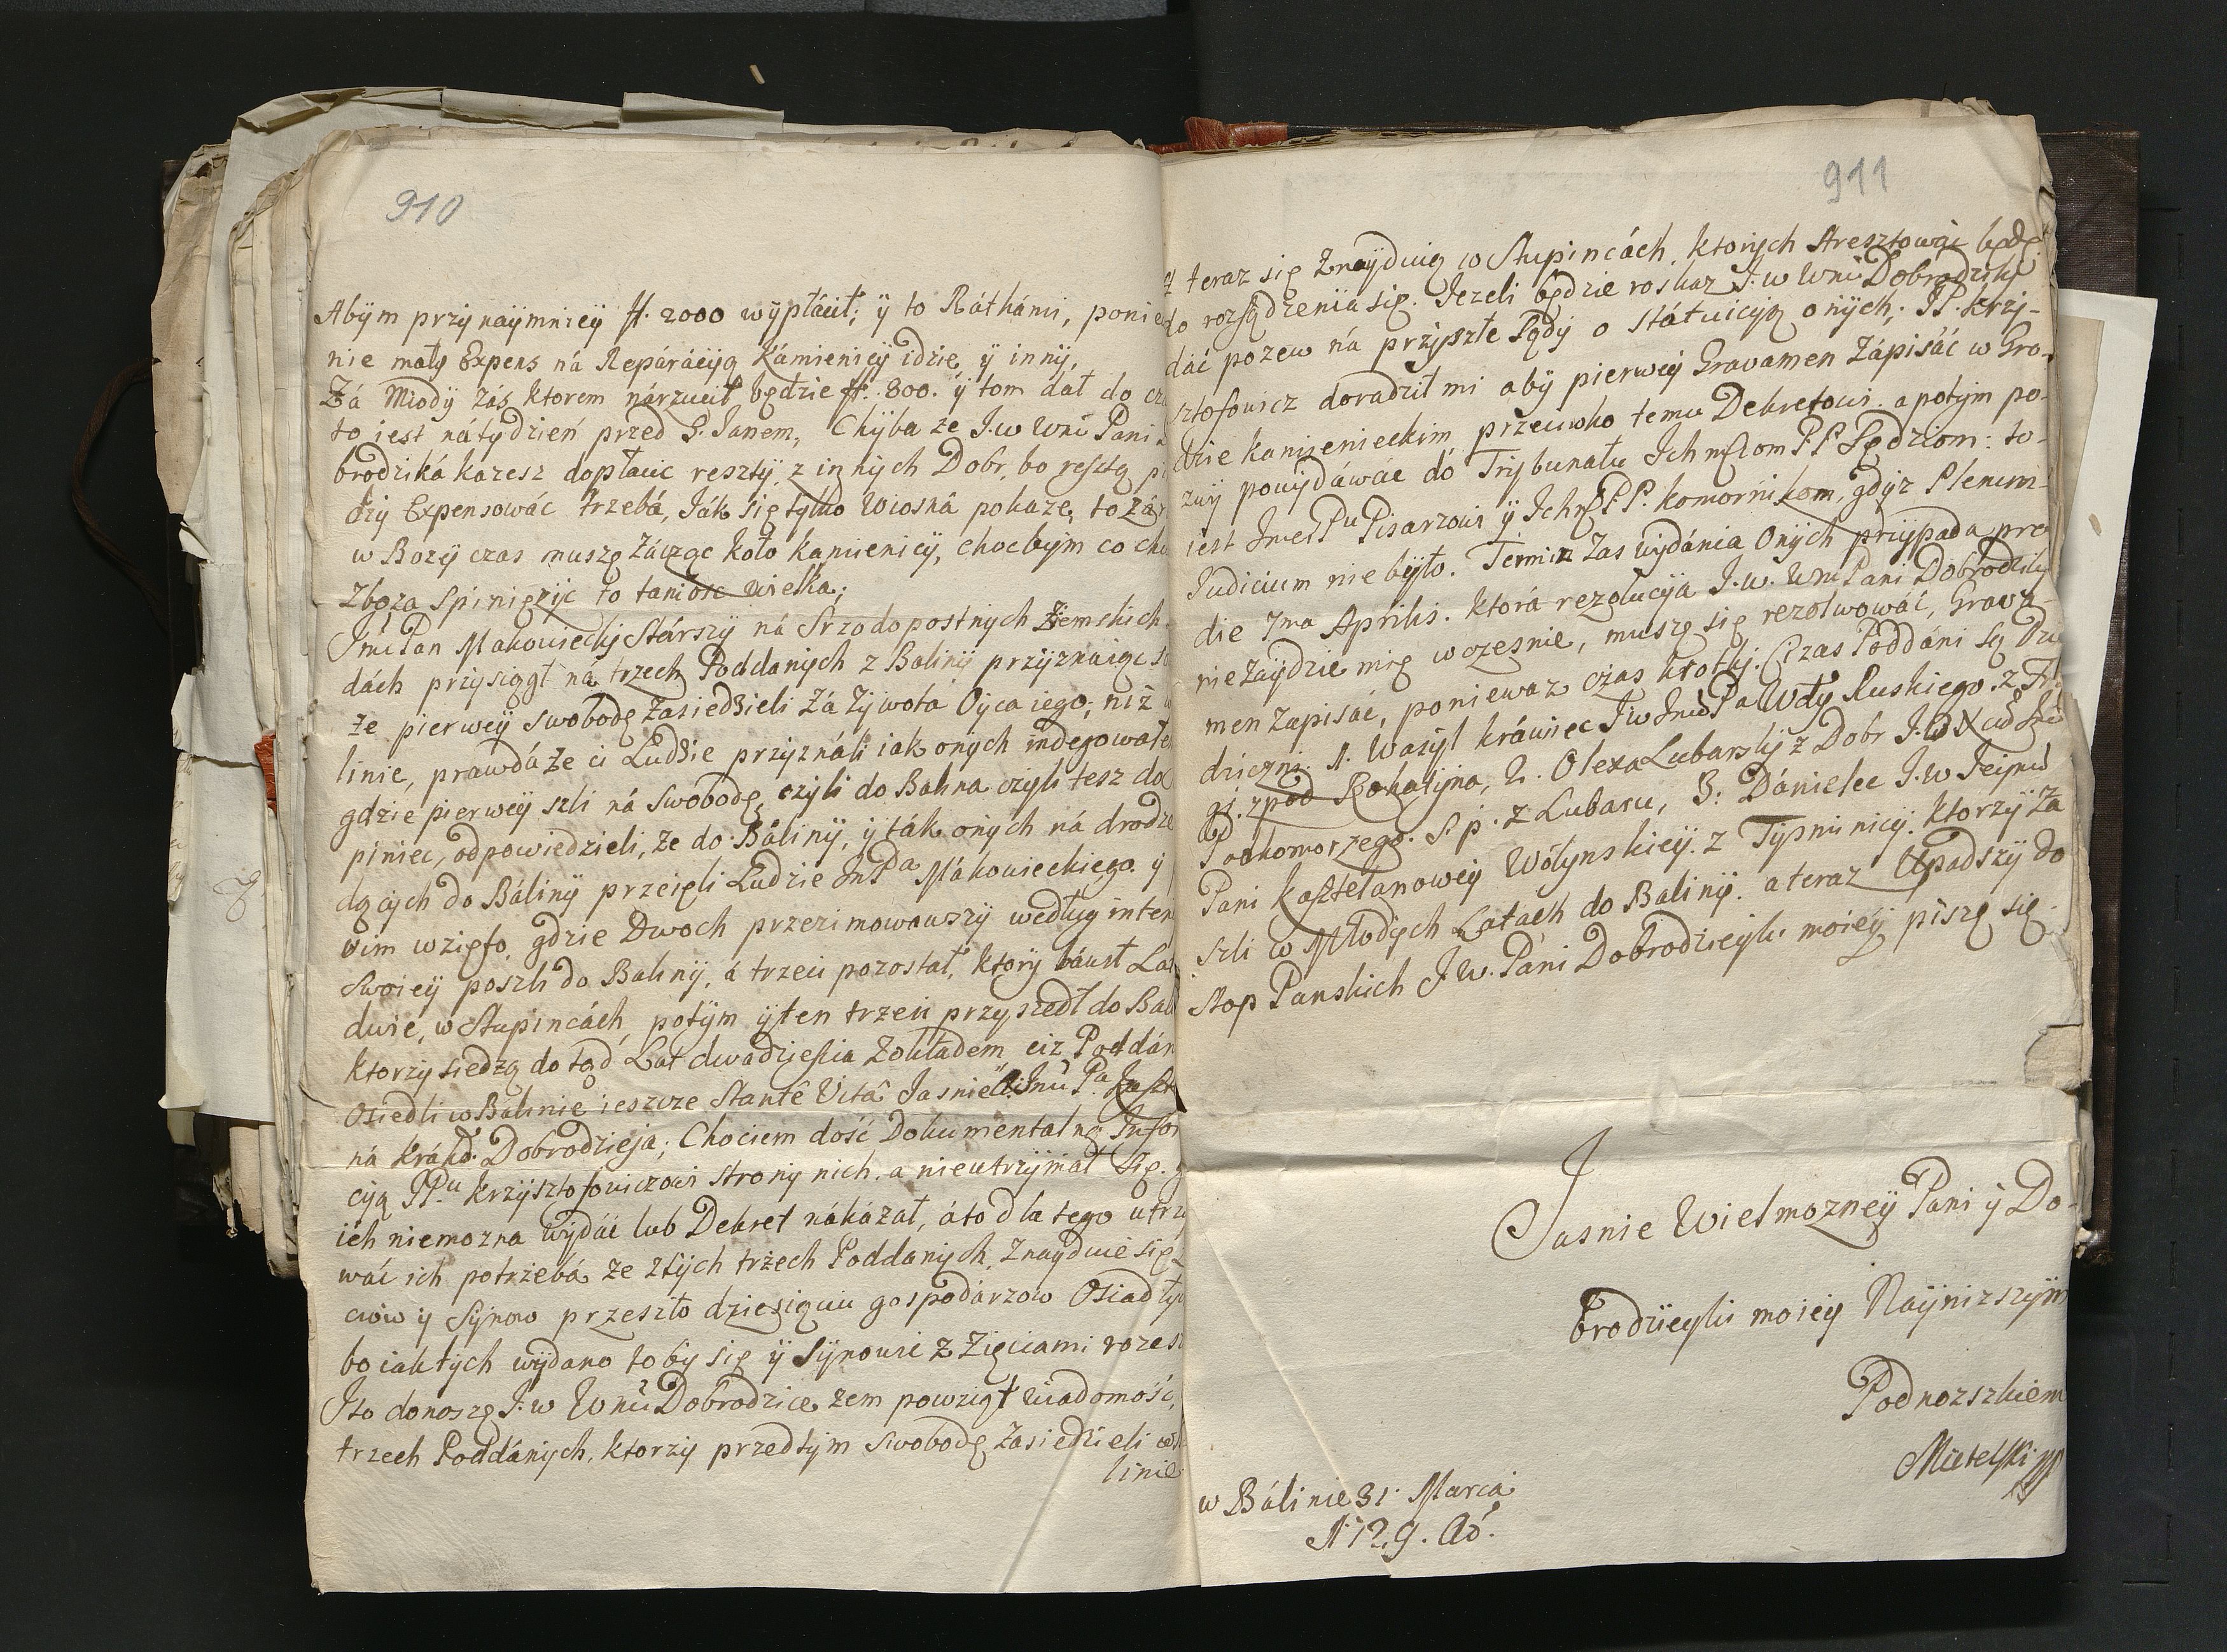 910
Abÿm przÿnaÿmnieÿ ff. 2000 wÿpłácił; ÿ to Ráthámi, ponie
nie małÿ Expens ná Repáráciÿą Kámienicÿ idzie, ÿ innÿ,
Zá Miodÿ zás, ktorem nárzucił będzie ff. 800. ÿ tom dał do
to iest nátÿdzień przed S. Janem, Chÿba że J.w Wnĩ Pani
brodziká kazesz dopłacic resztÿ, z innÿch Dobr, bo resztą
dzÿ Expensowác trzebá, Ják się tÿlko Wiosná pokaze, to
w Bozÿ czas muszę záczące koło kamienicÿ, chocbÿm co
zboża spieniężÿc to taniosc wielka;
Jmć Pan Makowieckÿ Stárszÿ ná Srzodopostnÿch Ziemskich
dách przÿsiągł ná trzech Poddanÿch z Balinÿ przÿznáiąc
że pierweÿ swobodę zasiedzieli Zá Zÿwota Oÿca iego, niż
linie, prawdá że ci Ludzie przÿználi iak onÿch indegował
gdzie pierweÿ szli ná swobodę, czÿli do Balina czÿli tesz do
piniec, odpowiedzieli, że do Bálinÿ, ÿ ták onÿch ná drodze
dącÿch do Bálinÿ przeięli Ludzie JmPa Mákowieckiego ÿ
wim wzięto, gdzie Dwoch przezimowawszÿ według inten
swoieÿ poszli do Balinÿ, á trzeci pozostał, ktorÿ báwił Lat
dwie, w Stupincách, potÿm ÿ ten trzeci przÿszedł do Bali
ktorzÿ siedzą do tąd Lat dwadziescia zokładem, ciz Poddán
osiedli w Balinie ieszcze Stante Vitâ Jasnie W. Jmci Pa Kaszt
ná krákw. Dobrodzieja; Chociem dość Dokumentalną Infor
cÿą JPu Krzÿsztofowiczowi stronÿ nich, a nieutrzÿmał się.
ich niemozna wÿdác lub Dekret nákázał, áto dla tego utrzÿ
wác ich potrzebá że z tÿch trzech Poddanÿch, znaÿduie się
ciow ÿ Sÿnow przeszło dziesiąciu gospodárzow Osiadłÿ
bo iak tÿch wÿdano to bÿ się ÿ Sÿnowie z Zięciami rozes
Ito donoszę J.w Wnĩ Dobrodzice żem powziął wiadomość,
trzech Poddánÿch, ktorzÿ przedtÿm swobodę zasiedzieli
linie
911
teraz się znaÿduią w Stupincách, ktorÿch Aresztowác będę
do rozsądzenia się. Iezeli będzie roskaz J.w Wnĩ Dobrodziki
dác pozew ná przÿszłe sądÿ o státuicÿą onÿch, JP. Krzÿ-
sztofowicz doradził mi abÿ pierweÿ Gravamen zápisác w Gro-
dzie kamienieckim przeciwko temu Dekretowi, a potÿm po-
zwÿ powÿdáwác do Trÿbunału Ich mściom PP Sędziom: to-
iest Jmci Pu Pisarzowi ÿ Ich mPP. komornikom, gdÿż Plenum
Judicium niebÿło. Termin zas wÿdánia onÿch przÿpada pro
die 7ma Aprilis. ktorá rezolucÿa J.w. Wni Pani Dobrodziki
niezaÿdzie mię wczesnie, muszę się rezolwowác, Grava-
men zapisác, poniewaz czas krotkÿ. Ciz zas Poddáni są Dzie
dziczni. 1. Wasÿl kráwiec J.w Jmci Pa Wdÿ Ruskiego z
zpod Rohatÿna, 2. Olexa Lubarskÿ z Dobr J.O X cia Jmci
Podkomorzego. S p. z Lubaru, 3: Dánielec J.w Jeÿmci
Pani kasztelanoweÿ Wołÿnskieÿ. z Tÿsmienicÿ. ktorzÿ za
szli w Młodÿch Latach do Balinÿ. a teraz Upadszÿ do
stop Panskich J.W. Pani Dobrodzieÿki moieÿ piszę się
Jasnie Wielmozneÿ Pani ÿ Do-
brodzieÿki moieÿ Naÿnizszÿm
Podnozszkiem
Mietelski mp
w Bálinie 31. Marca
A 1729. Ao.